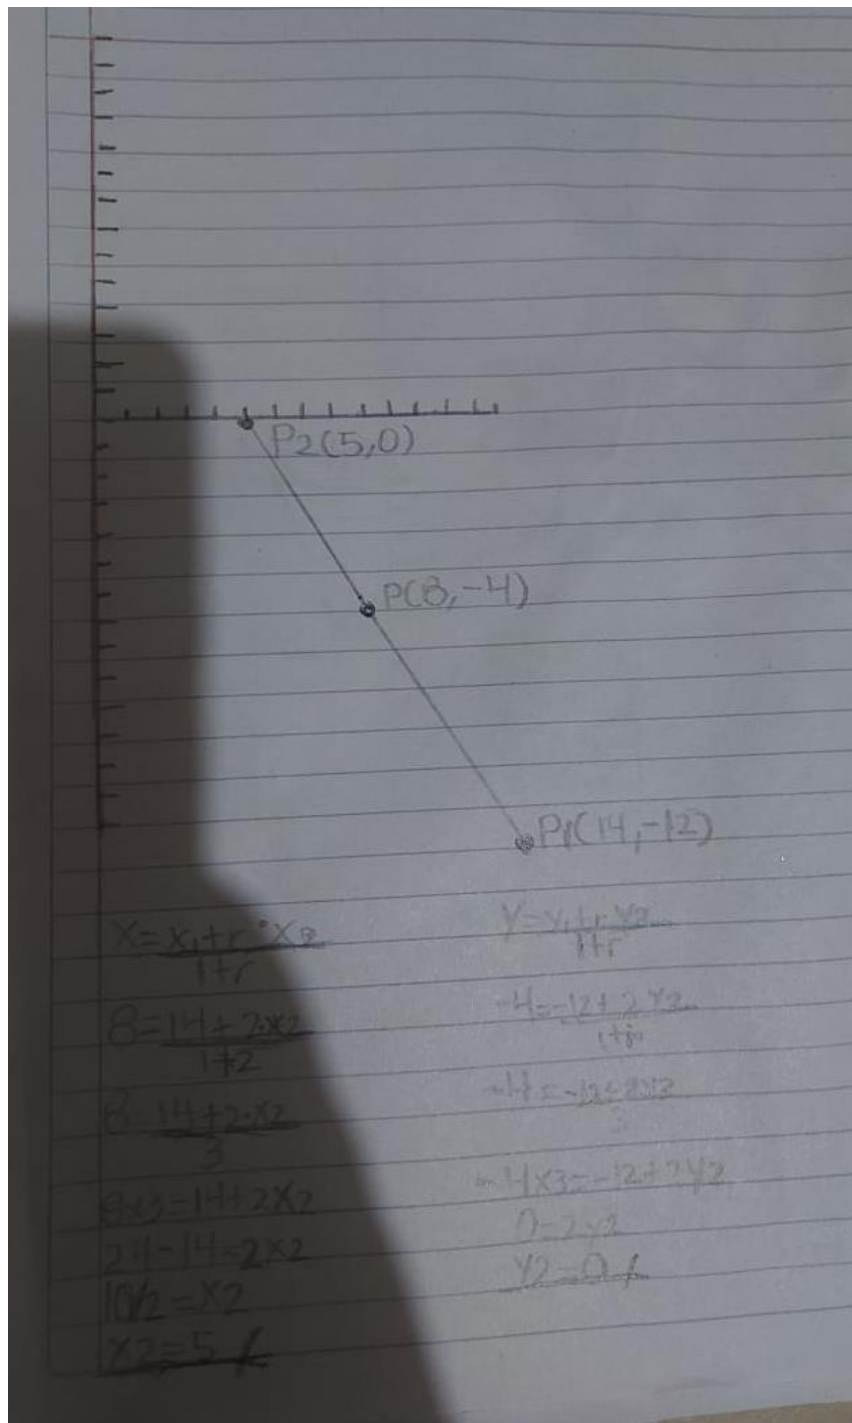 P2(5,0)
P(8,-4)
P1(14,-12)
x=x1+r·x2
1+r
8=14+2·x2
1+2
8=14+2·x2
3
8x3=14+2x2
24-14=2x2
10/2=x2
x2=5
y=y1+r y2
1+r
-4=-12+2y2
-4=-12+2y2
3
-4x3=-12+2y2
0=2y2
y2=0